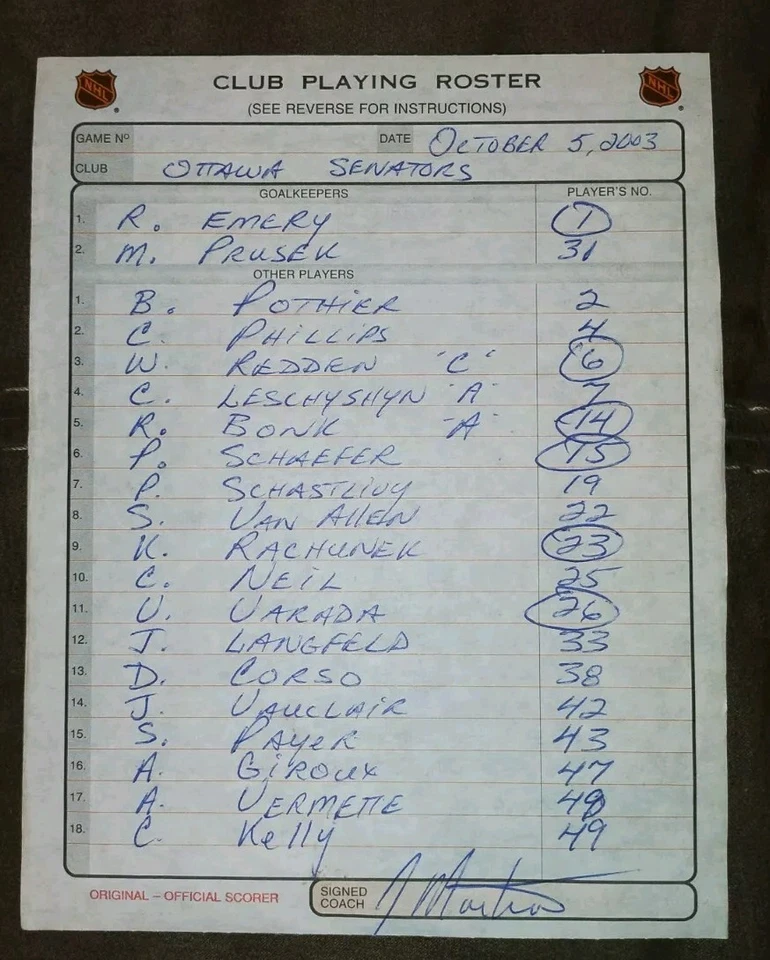 NHL CLUB PLAYING ROSTER NHL
(SEE REVERSE FOR INSTRUCTIONS)
GAME Nº DATE OCTOBER 5, 2003
CLUB OTTAWA SENATORS
GOALKEEPERS PLAYER'S NO.
1. R. EMERY 1
2. M. PRUSEK 31
OTHER PLAYERS
1. B. POTHIER 2
2. C. PHILLIPS 4
3. W. REDDEN "C" 6
4. C. LESCHYSHYN "A" 7
5. R. BONK "A" 14
6. P. SCHAEFER 15
7. P. SCHASTLIVY 19
8. S. VAN ALLEN 22
9. K. RACHUNEK 23
10. C. NEIL 25
11. V. VARADA 26
12. J. LANGFELD 33
13. D. CORSO 38
14. J. VAUCLAIR 42
15. S. PAYER 43
16. A. GIROUX 47
17. A. VERMETTE
18. C. Kelly 49
ORIGINAL – OFFICIAL SCORER SIGNED
COACH J Martin